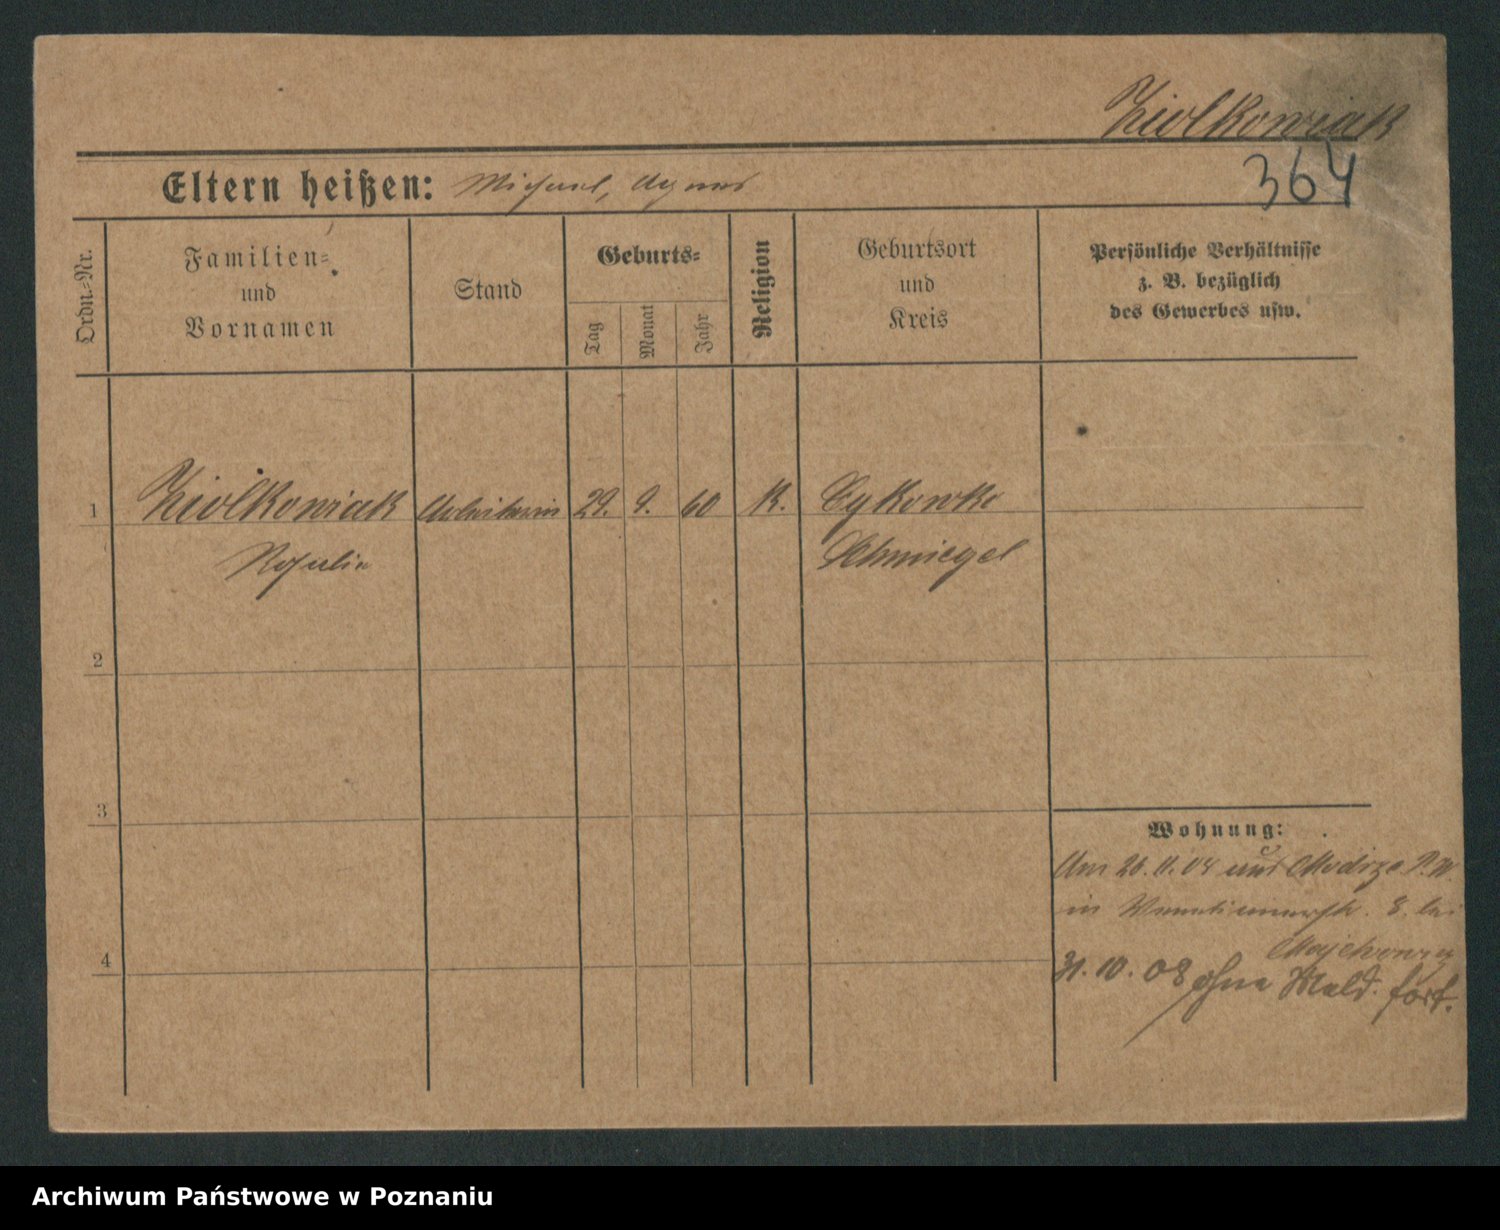 Ziolkowiak
364
Eltern heißen: Michael, Agnes
Ordn.=Nr.
Familien=
und
Vornamen
Stand
Geburts=
Tag
Monat
Jahr
Religion
Geburtsort
und
Kreis
Persönliche Verhältnisse
z. B. bezüglich
des Gewerbes usw.
1 Ziolkowiak Arbeiterin 29. 9. 60 K. Cykowko
Rosalie Schmiegel
2
3
Wohnung:
Am 26. 11. 04 aus Modrze P. W.
in 8. bei
4
31. 10. 08 ohne Meld. fort.
Archiwum Państwowe w Poznaniu